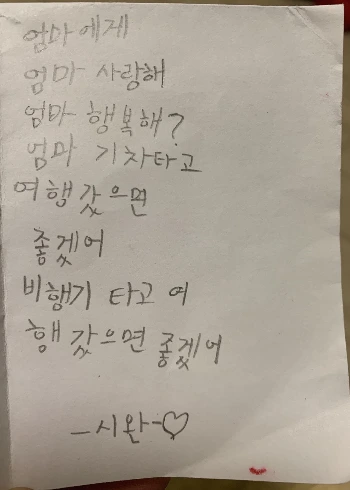 엄마에게
엄마 사랑해
엄마 행복해?
엄마 기차타고
여행갔으면
좋겠어
비행기 타고 여
행 갔으면 좋겠어
-시완-♡